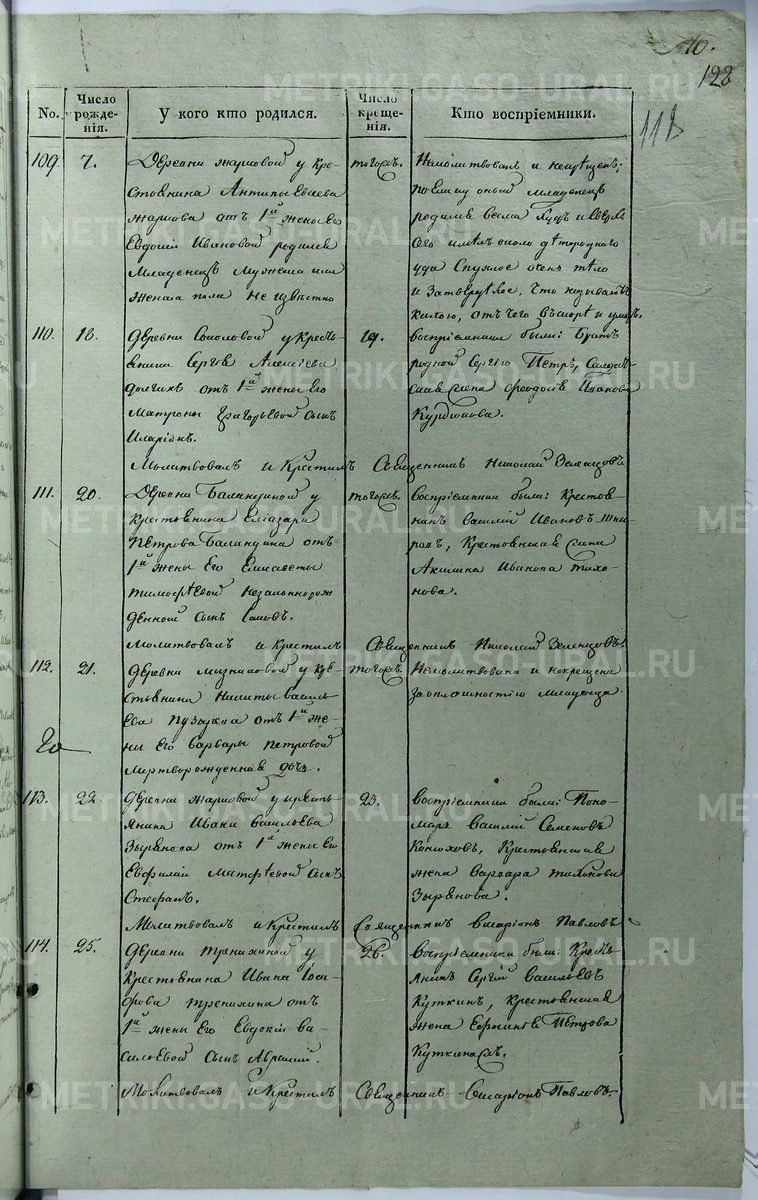 128
118
No.
Число рожденія.
У кого кто родился.
Число крещенія.
Кто воспріемники.
109. 7.
Деревни Жаровой у кре-
стьянина Антипы
отъ 1й жены Его
Евдокіи Ивановой родился
Младенецъ Мужеска или
Женска пола не извѣстно
тогожъ.
Немолитвованъ и
поелику оный Младенецъ
родился весьма худъ и
имѣлъ около дѣтороднаго
уда Спухлое очень тѣло
и Затвердѣлое, Что называютъ
килою, отъ чего въскорѣ и умеръ.
110. 18.
Деревни Соколовой у Кресть-
янина Сергѣя Алексѣева
Долгихъ отъ 1й жены Его
Матроны Григорьевой Сынъ
Иларіонъ.
19.
воспріемники были: Братъ
родной Сергѣю Петръ, Солдат-
ская жена Феодосія Иванова
Курдюкова.
Молитвовалъ и Крестилъ Священникъ Николай Зеленцовъ
111. 20.
Деревни Баландиной у
Крестьянина Еліазара
Петрова Баландина отъ
1й жены Его Елисаветы
Тимофѣевой незаконнорож
денной сынъ
тогожъ.
воспріемники были: Крестья-
нинъ Василій Ивановъ
Крестьянская
Акилина Иванова Тихо-
нова.
Молитвовалъ и Крестилъ Священникъ Николай Зеленцовъ
112. 21.
Деревни у Кре-
стьянина Никиты Василь-
ева отъ 1й же-
ны Его Варвары Петровой
Мертворожденная дочь.
тогожъ.
Немолитвована и некрещена
За оплошностію младенца.
113. 22.
Деревни Жаровой у кресть-
янина Ивана Васильева
Зырянова отъ 1й жены Его
Евфиміи Матфѣевой Сынъ
Стефанъ.
23.
воспріемники были: Поно-
марь Василій Семеновъ
Конюховъ, Крестьянская
жена Варвара Тихонова
Зырянова.
Молитвовалъ и Крестилъ Священникъ Виссаріонъ Павловъ
114. 25.
Деревни Тренихиной у
Крестьянина Ивана Іоси-
фова Тренихина отъ
1й жены Его Евдокіи Ва-
сильевой Сынъ Аврамій.
26.
воспріемники были: Кресть-
янинъ Сергій Васильевъ
Куткинъ, Крестьянская
жена Евфимія Петрова
Куткина
Молитвовалъ и Крестилъ Священникъ Виссаріонъ Павловъ.
METRIKI.GASO-URAL.RU